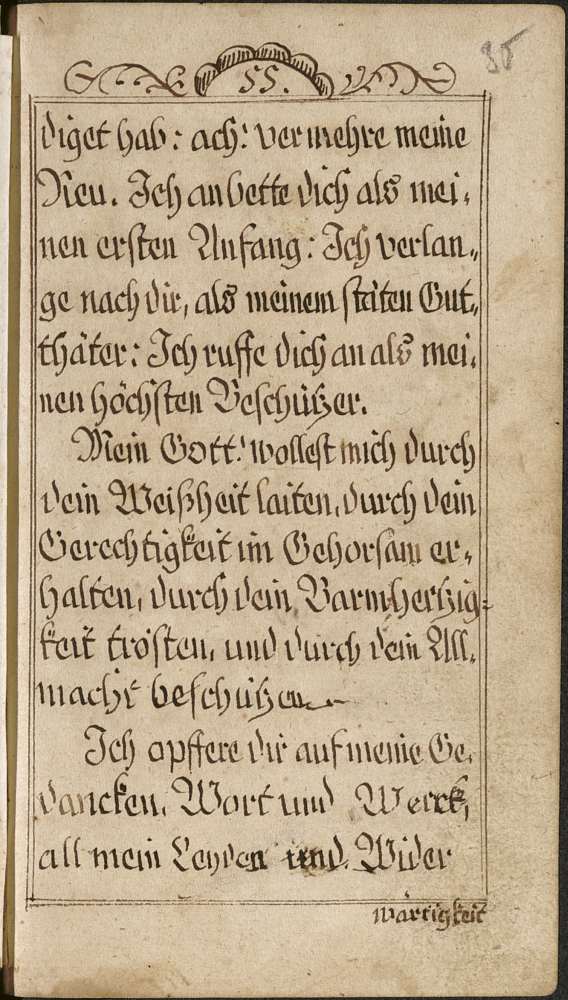 55.
35
diget hab: ach! vermehre meine
Reu. Ich anbette dich als mei,
nen ersten Anfang: Ich verlan„
ge nach dir, als meinem stäten Gut„
thäter: Ich ruffe dich an als mei,
nen höchsten Beschützer.
Mein Gott! wollest mich durch
dein Weißheit laiten, durch dein
Gerechtigkeit im Gehorsam er„
halten, durch dein Barmhertzig=
keit trösten, und durch dein All„
macht beschützen
Ich opffere dir auf meine Ge„
dancken, Wort und Werck,
all mein Leyden und Wider
wärtigkeit